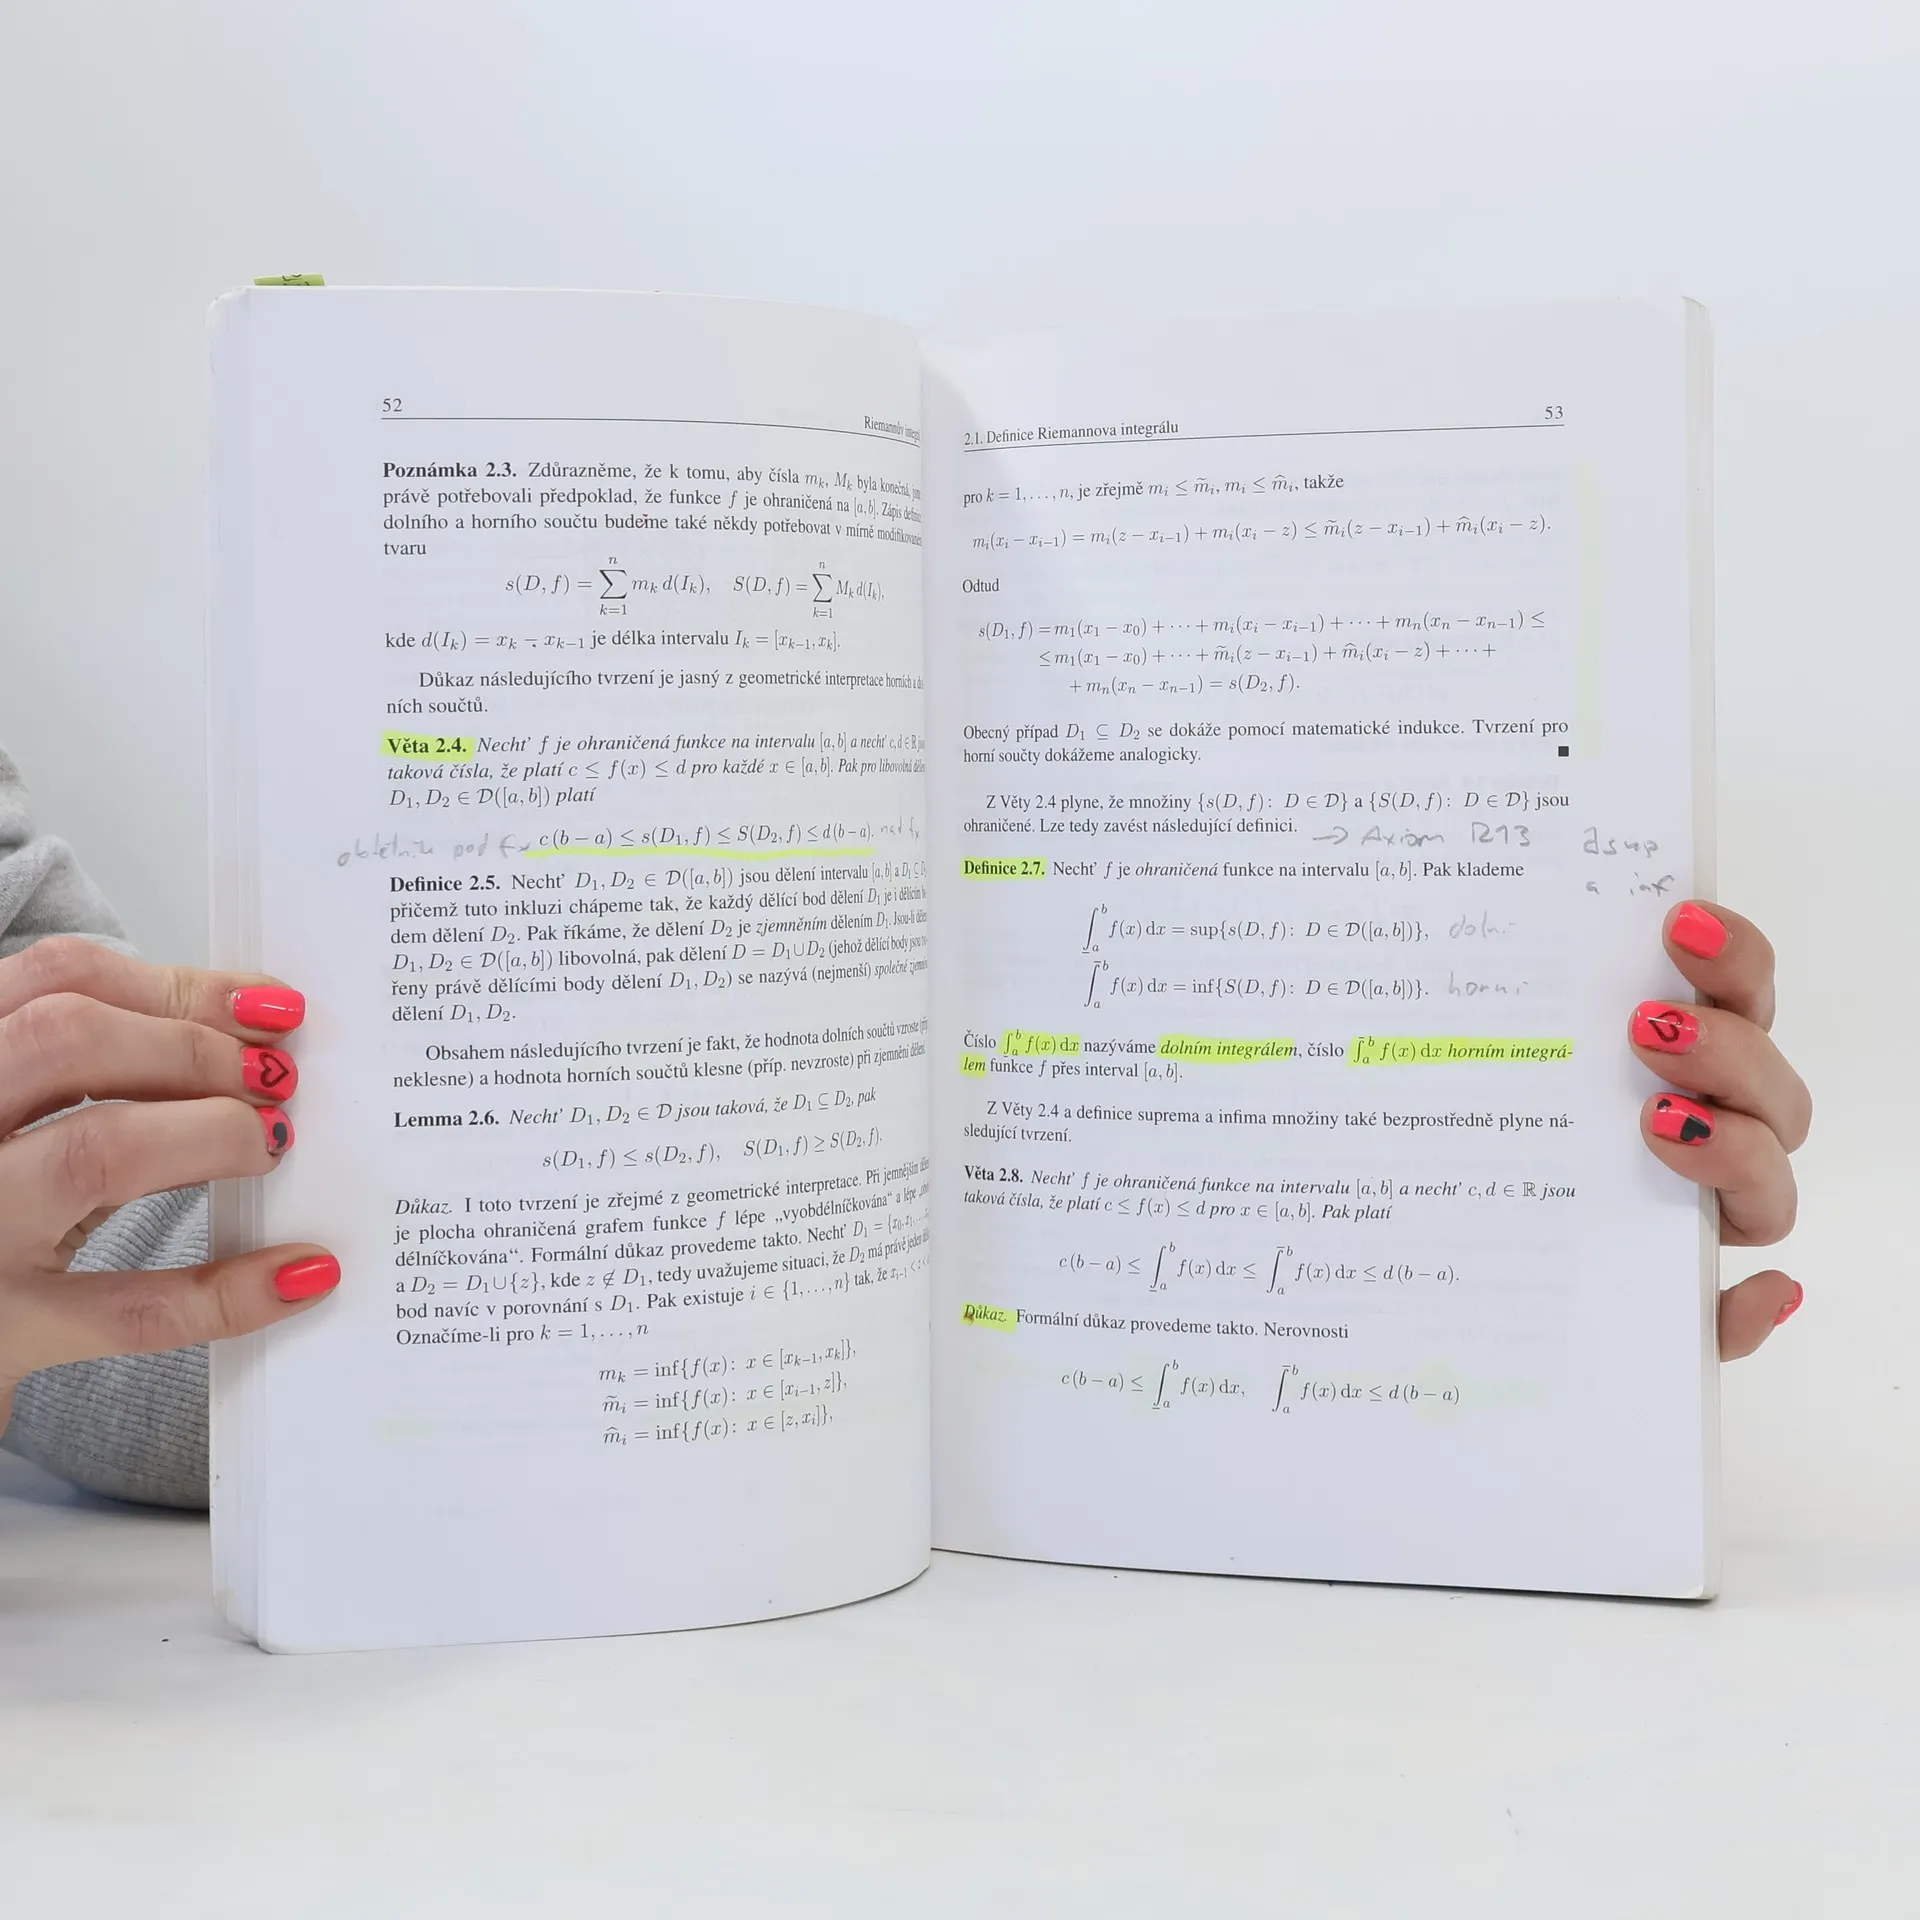 52
Riemannův
Poznámka 2.3. Zdůrazněme, že k tomu, aby čísla mₖ, Mₖ byla konečná,
právě potřebovali předpoklad, že funkce f je ohraničená na [a, b]. Zápis
dolního a horního součtu budeme také někdy potřebovat v mírně
tvaru
s(D, f) = ∑ₖ₌₁ⁿ mₖ d(Iₖ), S(D, f) = ∑ₖ₌₁ⁿ Mₖ d(Iₖ),
kde d(Iₖ) = xₖ − xₖ₋₁ je délka intervalu Iₖ = [xₖ₋₁, xₖ].
Důkaz následujícího tvrzení je jasný z geometrické interpretace horních a
ních součtů.
Věta 2.4. Nechť f je ohraničená funkce na intervalu [a, b] a nechť c, d ∈ ℝ
taková čísla, že platí c ≤ f(x) ≤ d pro každé x ∈ [a, b]. Pak pro libovolná
D₁, D₂ ∈ 𝒟([a, b]) platí
pod fx c (b − a) ≤ s(D₁, f) ≤ S(D₂, f) ≤ d (b − a). nad fx
Definice 2.5. Nechť D₁, D₂ ∈ 𝒟([a, b]) jsou dělení intervalu [a, b] a D₁ ⊆
přičemž tuto inkluzi chápeme tak, že každý dělící bod dělení D₁ je i dělicím
dem dělení D₂. Pak říkáme, že dělení D₂ je zjemněním dělením D₁. Jsou-li
D₁, D₂ ∈ 𝒟([a, b]) libovolná, pak dělení D = D₁∪D₂ (jehož dělící body jsou
řeny právě dělícími body dělení D₁, D₂) se nazývá (nejmenší) společné
dělení D₁, D₂.
Obsahem následujícího tvrzení je fakt, že hodnota dolních součtů vzroste
neklesne) a hodnota horních součtů klesne (příp. nevzroste) při zjemnění dělení.
Lemma 2.6. Nechť D₁, D₂ ∈ 𝒟 jsou taková, že D₁ ⊆ D₂, pak
s(D₁, f) ≤ s(D₂, f), S(D₁, f) ≥ S(D₂, f).
Důkaz. I toto tvrzení je zřejmé z geometrické interpretace. Při jemnějším
je plocha ohraničená grafem funkce f lépe „vyobdélníčkována“ a lépe
délníčkována“. Formální důkaz provedeme takto. Nechť D₁ = {x₀, x₁,
a D₂ = D₁∪{z}, kde z ∉ D₁, tedy uvažujeme situaci, že D₂ má právě jeden
bod navíc v porovnání s D₁. Pak existuje i ∈ {1, . . . , n} tak, že xᵢ₋₁ < z <
Označíme-li pro k = 1, . . . , n
mₖ = inf{f(x) : x ∈ [xₖ₋₁, xₖ]},
m̃ᵢ = inf{f(x) : x ∈ [xᵢ₋₁, z]},
m̂ᵢ = inf{f(x) : x ∈ [z, xᵢ]},
2.1. Definice Riemannova integrálu 53
pro k = 1, . . . , n, je zřejmě mᵢ ≤ m̃ᵢ, mᵢ ≤ m̂ᵢ, takže
mᵢ(xᵢ − xᵢ₋₁) = mᵢ(z − xᵢ₋₁) + mᵢ(xᵢ − z) ≤ m̃ᵢ(z − xᵢ₋₁) + m̂ᵢ(xᵢ − z).
Odtud
s(D₁, f) = m₁(x₁ − x₀) + ⋯ + mᵢ(xᵢ − xᵢ₋₁) + ⋯ + mₙ(xₙ − xₙ₋₁) ≤
≤ m₁(x₁ − x₀) + ⋯ + m̃ᵢ(z − xᵢ₋₁) + m̂ᵢ(xᵢ − z) + ⋯ +
+ mₙ(xₙ − xₙ₋₁) = s(D₂, f).
Obecný případ D₁ ⊆ D₂ se dokáže pomocí matematické indukce. Tvrzení pro
horní součty dokážeme analogicky. ■
Z Věty 2.4 plyne, že množiny {s(D, f) : D ∈ 𝒟} a {S(D, f) : D ∈ 𝒟} jsou
ohraničené. Lze tedy zavést následující definici.
→ Axiom R13
∃ sup
a inf
Definice 2.7. Nechť f je ohraničená funkce na intervalu [a, b]. Pak klademe
∫̲ₐᵇ f(x) dx = sup{s(D, f) : D ∈ 𝒟([a, b])}, dolní
∫̅ₐᵇ f(x) dx = inf{S(D, f) : D ∈ 𝒟([a, b])}. horní
Číslo ∫̲ₐᵇ f(x) dx nazýváme dolním integrálem, číslo ∫̅ₐᵇ f(x) dx horním integrá-
lem funkce f přes interval [a, b].
Z Věty 2.4 a definice suprema a infima množiny také bezprostředně plyne ná-
sledující tvrzení.
Věta 2.8. Nechť f je ohraničená funkce na intervalu [a, b] a nechť c, d ∈ ℝ jsou
taková čísla, že platí c ≤ f(x) ≤ d pro x ∈ [a, b]. Pak platí
c (b − a) ≤ ∫̲ₐᵇ f(x) dx ≤ ∫̅ₐᵇ f(x) dx ≤ d (b − a).
Důkaz. Formální důkaz provedeme takto. Nerovnosti
c (b − a) ≤ ∫̲ₐᵇ f(x) dx, ∫̅ₐᵇ f(x) dx ≤ d (b − a)